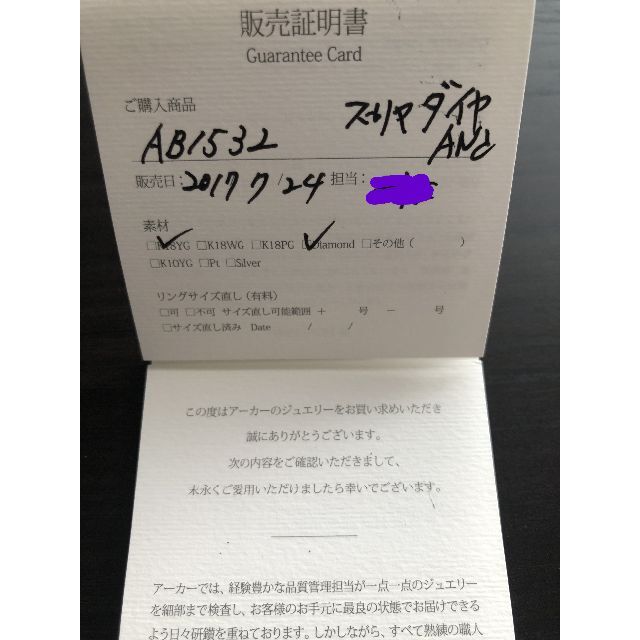 販売証明書
Guarantee Card
ご購入商品
AB1532
ダイヤ
販売日：2017 7/24 担当：
素材
□K18YG □K18WG □K18PG □Diamond □その他 ( )
□K10YG □Pt □Silver
リングサイズ直し (有料)
□可 □不可 サイズ直し可能範囲 + 号 − 号
□サイズ直し済み Date / /
この度はアーカーのジュエリーをお買い求めいただき
誠にありがとうございます。
次の内容をご確認いただきまして、
末永くご愛用いただけましたら幸いでございます。
アーカーでは、経験豊かな品質管理担当が一点一点のジュエリー
を細部まで検査し、お客様のお手元に最良の状態でお届けできる
よう日々研鑽を重ねております。しかしながら、すべて熟練の職人